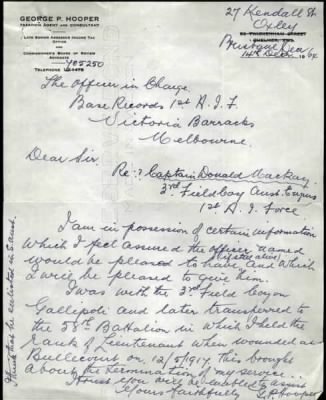 GEORGE P. HOOPER
TAXATION AGENT AND CONSULTANT
LATE SENIOR ASSESSOR INCOME TAX
OFFICE
AND
COMMISSIONER'S BOARD OF REVIEW
ADVOCATE
TELEPHONE
705250
27 Kendall St
Oxley
Brisbane
14th Dec. 19
The Officer in Charge.
Base Records 1st A. I. F
Victoria Barracks
Melbourne.
Dear Sir
Re:- Captain Donald Mackay
3rd Field Coy Aust. Engrs
1st A. I. Force
I am in possession of certain information
which I feel assured the officer named
would be pleased to have and which
(if still alive)
I will be pleased to give him.
I was with the 3rd Field Coy on
Gallipoli and later transferred to
the 58th Battalion in which I held the
rank of Lieutenant when wounded at
Bullecourt on 12/5/1917. This brought
about the termination of my service.
I trust you will be able to assist
Yours faithfully G P Hooper
I think that he enlisted in E. Aust.